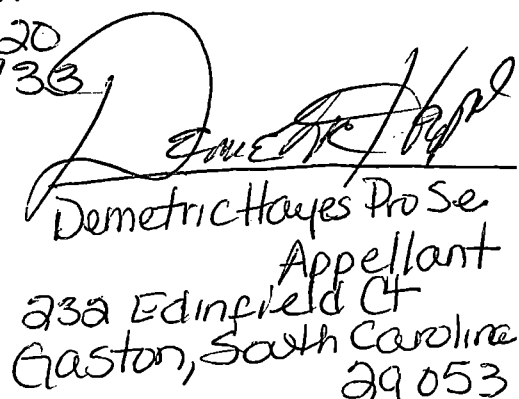 20
33
Demetric Hayes Pro Se
Appellant
232 Edinfield Ct
Gaston, South Carolina
29053